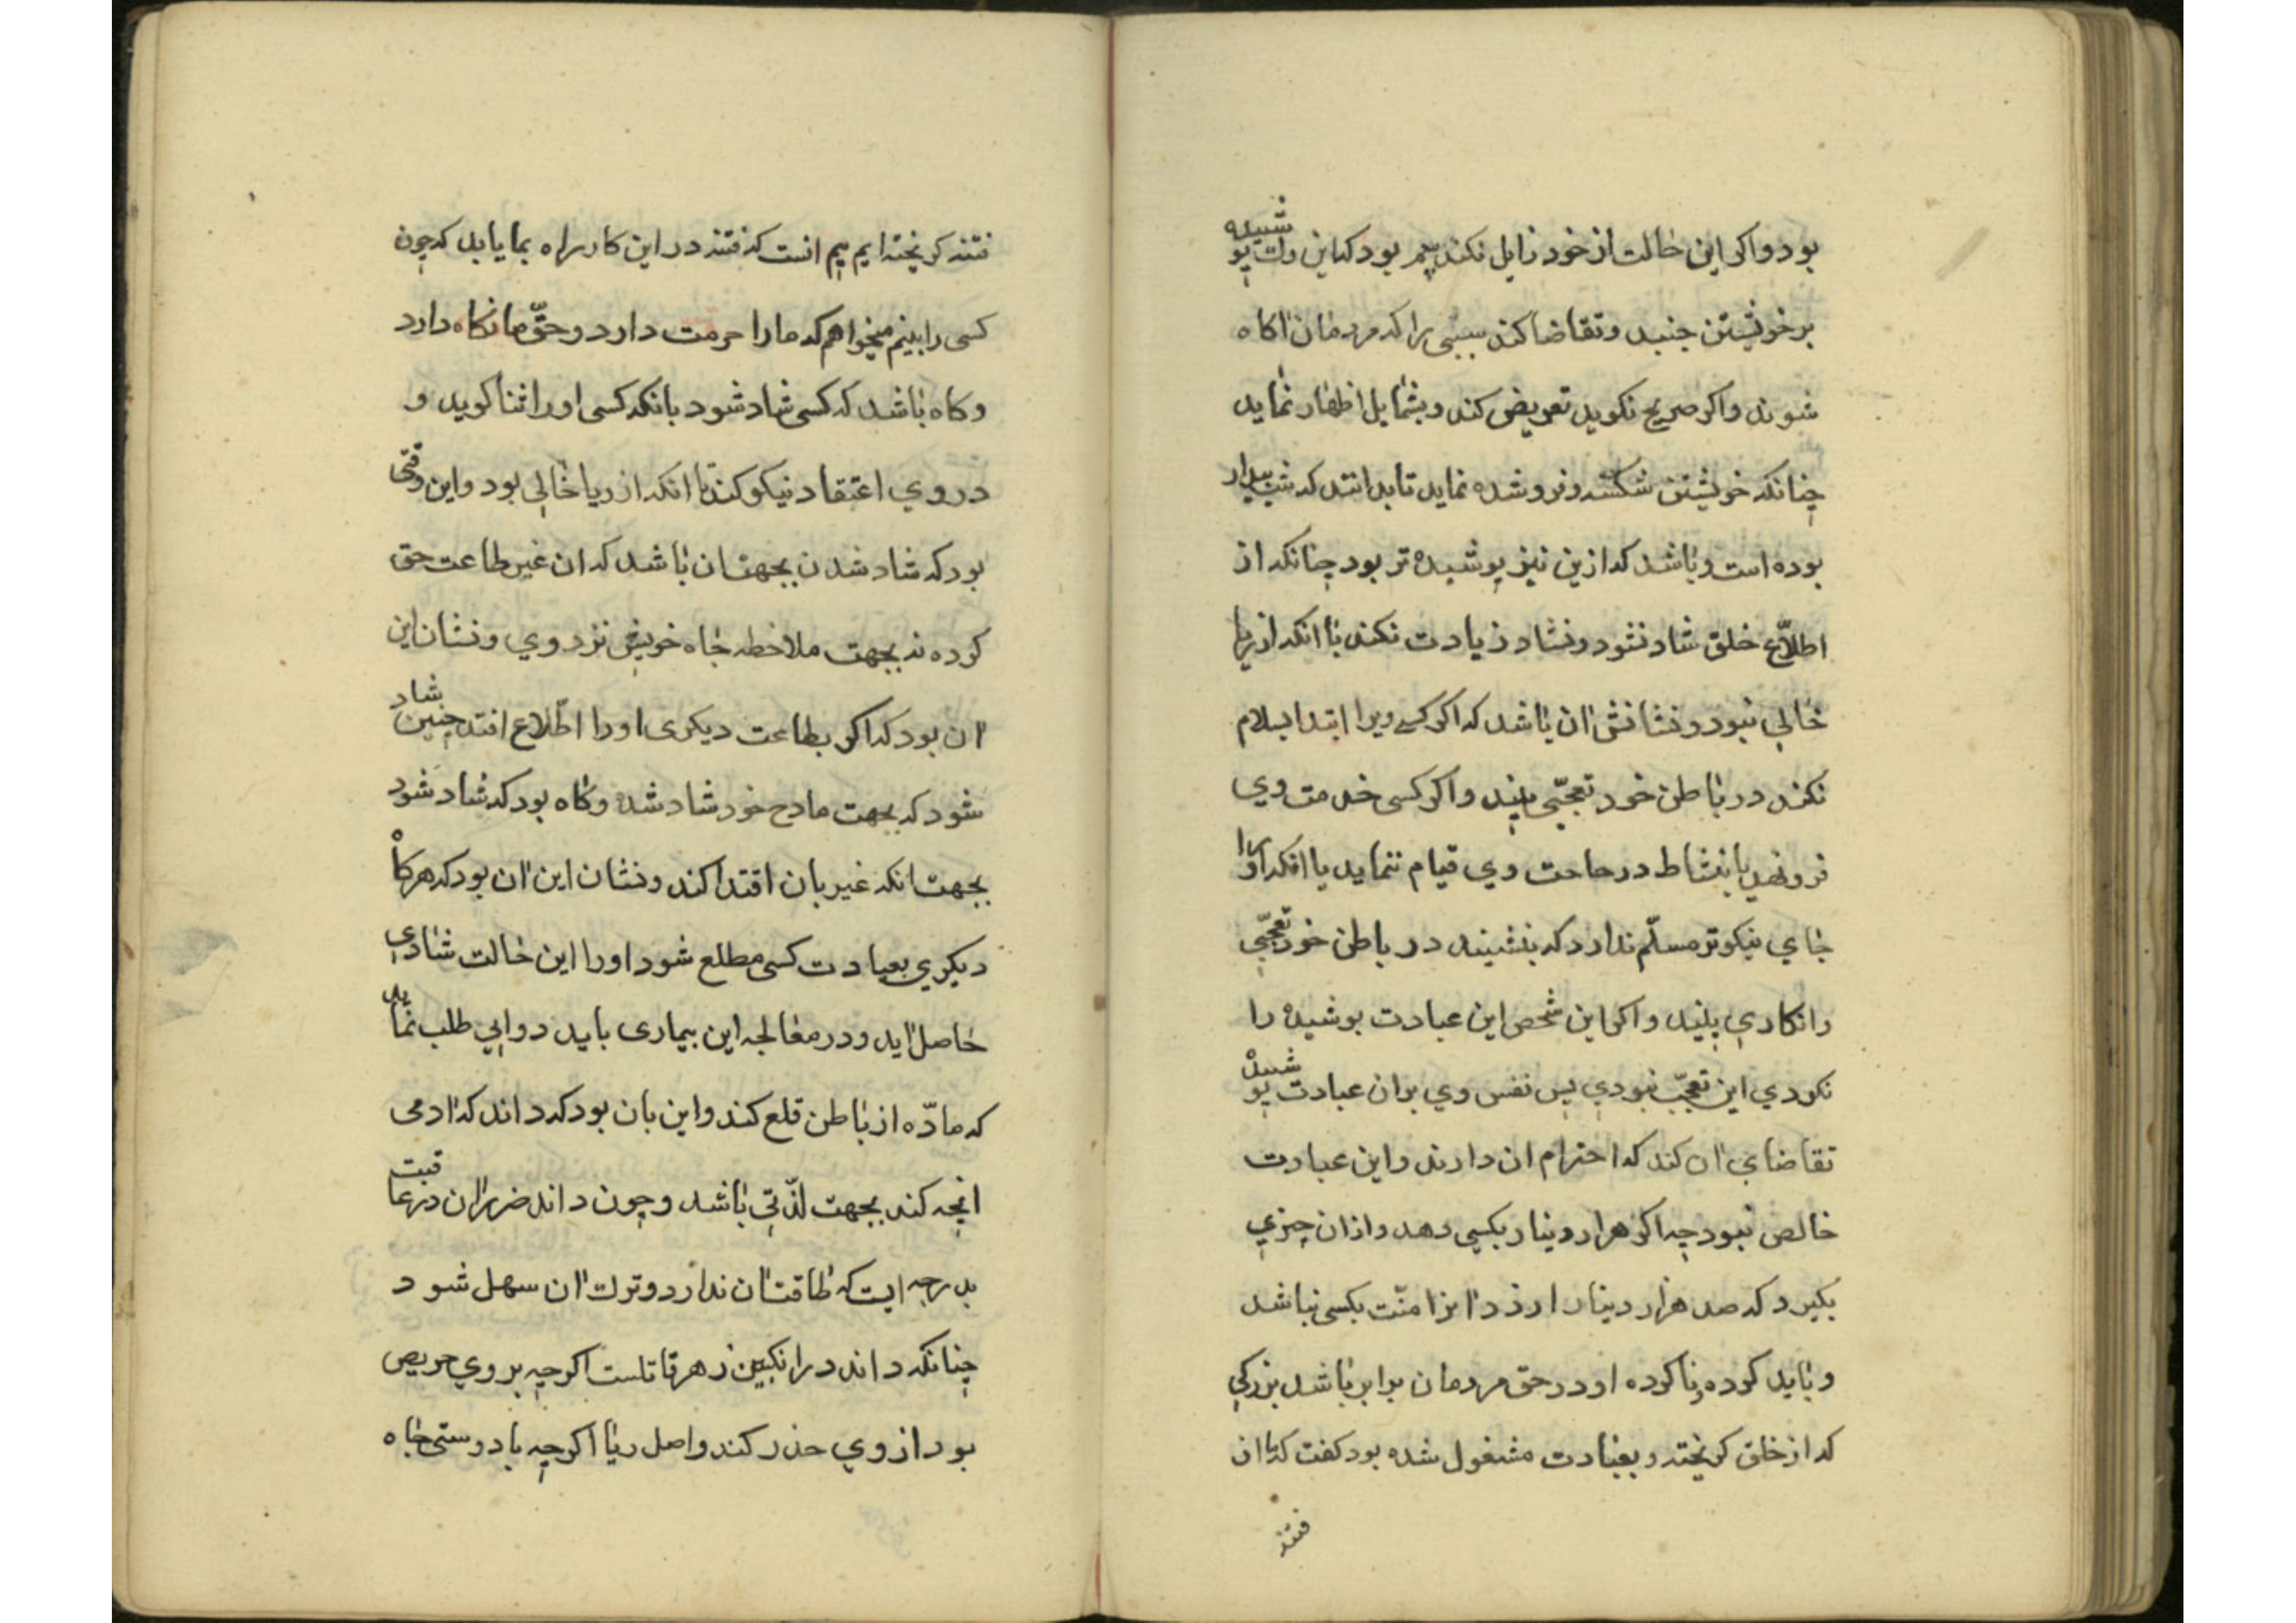 بود واکر این حالت از خود زایل نکند بیم بود که این رک پوشیده
بر خویشتن جنبد و تقاضا کند سببی را که مردمان اکاه
شوند واکر صریح نکوید تعریض کند و بشمایل اظهار نماید
چنانکه خویشتن شکسته و فروشده نماید تا بدانند که شب بیدار
بوده است و باشد که ازین نیز پوشیده تر بود چنانکه از
اطلاّع خلق شاد نشود و نشاد زیادت نکند با انکه از ریا
خالی نبود و نشانش ان باشد که اکر کسی ویرا ابتدا بسلام
نکند در باطن خود تعجّبی بیند واکر کسی خدمت وی
فرو نهد یا بنشاط در حاجت وی قیام ننماید یا انکه او را
جای نیکوتر مسلّم ندارد که بنشیند در باطن خود تعجّبی
وانکاری بیند واکر این شخص این عبادت پوشیده را
نکردی این تعجّب نبودی پس نفس وی بران عبادت پوشیده
تقاضای ان کند که احترام ان دارند و این عبادت
خالص نبود چه اکر هزار دینار بکسی دهد و ازان چیزی
بکیرد که صد هزار دینار ارزد انرا منّت بکسی نباشد
و باید کرده و ناکرده او در حق مردمان برابر باشد بزرکی
که از خلق کریخته و بعبادت مشغول شده بود کفت که ما از
فتنه
فتنه کریخته ایم بیم انست که فتنه در این کار راه بما یابد که چون
کسی را بینیم میخواهم که ما را حرمت دارد و حقّ ما نکاه دارد
و کاه باشد که کسی شاد شود بانکه کسی او را ثنا کوید و
در وی اعتقاد نیکو کند تا انکه از ریا خالی بود و این وقتی
بود که شاد شدن بجهت ان باشد که ان غیر طاعت حق
کرده نه بجهت ملاحظه جاه خویش نزد وی و نشان این
ان بود که اکر بطاعت دیکری او را اطّلاع افتد چنین شاد
شود که بجهت مادح خود شاد شده و کاه بود که شاد شود
بجهت انکه غیر بان اقتدا کند و نشان این ان بود که هرکاه
دیکری بعبادت کسی مطلع شود او را این حالت شادی
حاصل اید و در معالجه این بیماری باید دوایی طلب نماید
که مادّه از باطن قلع کند و این بان بود که داند که ادمی
انچه کند بجهت لذّتی باشد و چون داند ضرر ان در عاقبت
بدرجه ایست که طاقت ان ندارد و ترک ان سهل شود
چنانکه داند در انکبین زهر قاتلست اکرچه بر وی حریص
بود از وی حذر کند و اصل ریا اکرچه با دوستی جاه